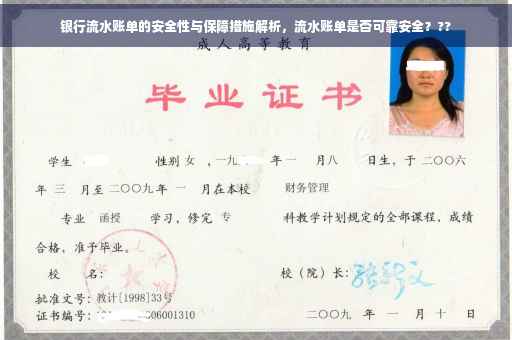 银行流水账单的安全性与保障措施解析，流水账单是否可靠安全？??
成人高等教育
毕业证书
学生 性别 女 ，一九 年 一 月八 日生，于 二〇〇六
年 三 月至 二〇〇九年 一 月在本校 财务管理
专业 函授 学习，修完 专 科教学计划规定的全部课程，成绩
合格，准予毕业。
校 名： 校（院）长：
批准文号：教计[1998]33号
证书编号： 06001310 二〇〇九 年 一 月 十 日